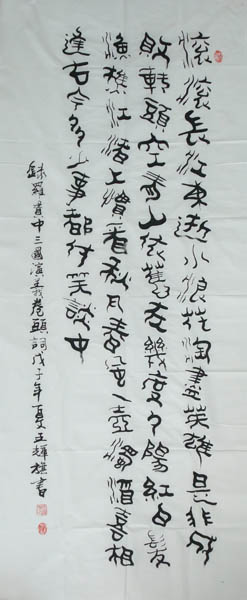 滾滾長江東逝水浪花淘盡英雄是非成
敗轉頭空青山依舊在幾度夕陽紅白髮
漁樵江渚上慣看秋月春風一壺濁酒喜相
逢古今多少事都付笑談中
錄羅貫中三國演義卷頭詞戊子年夏王輝樵書